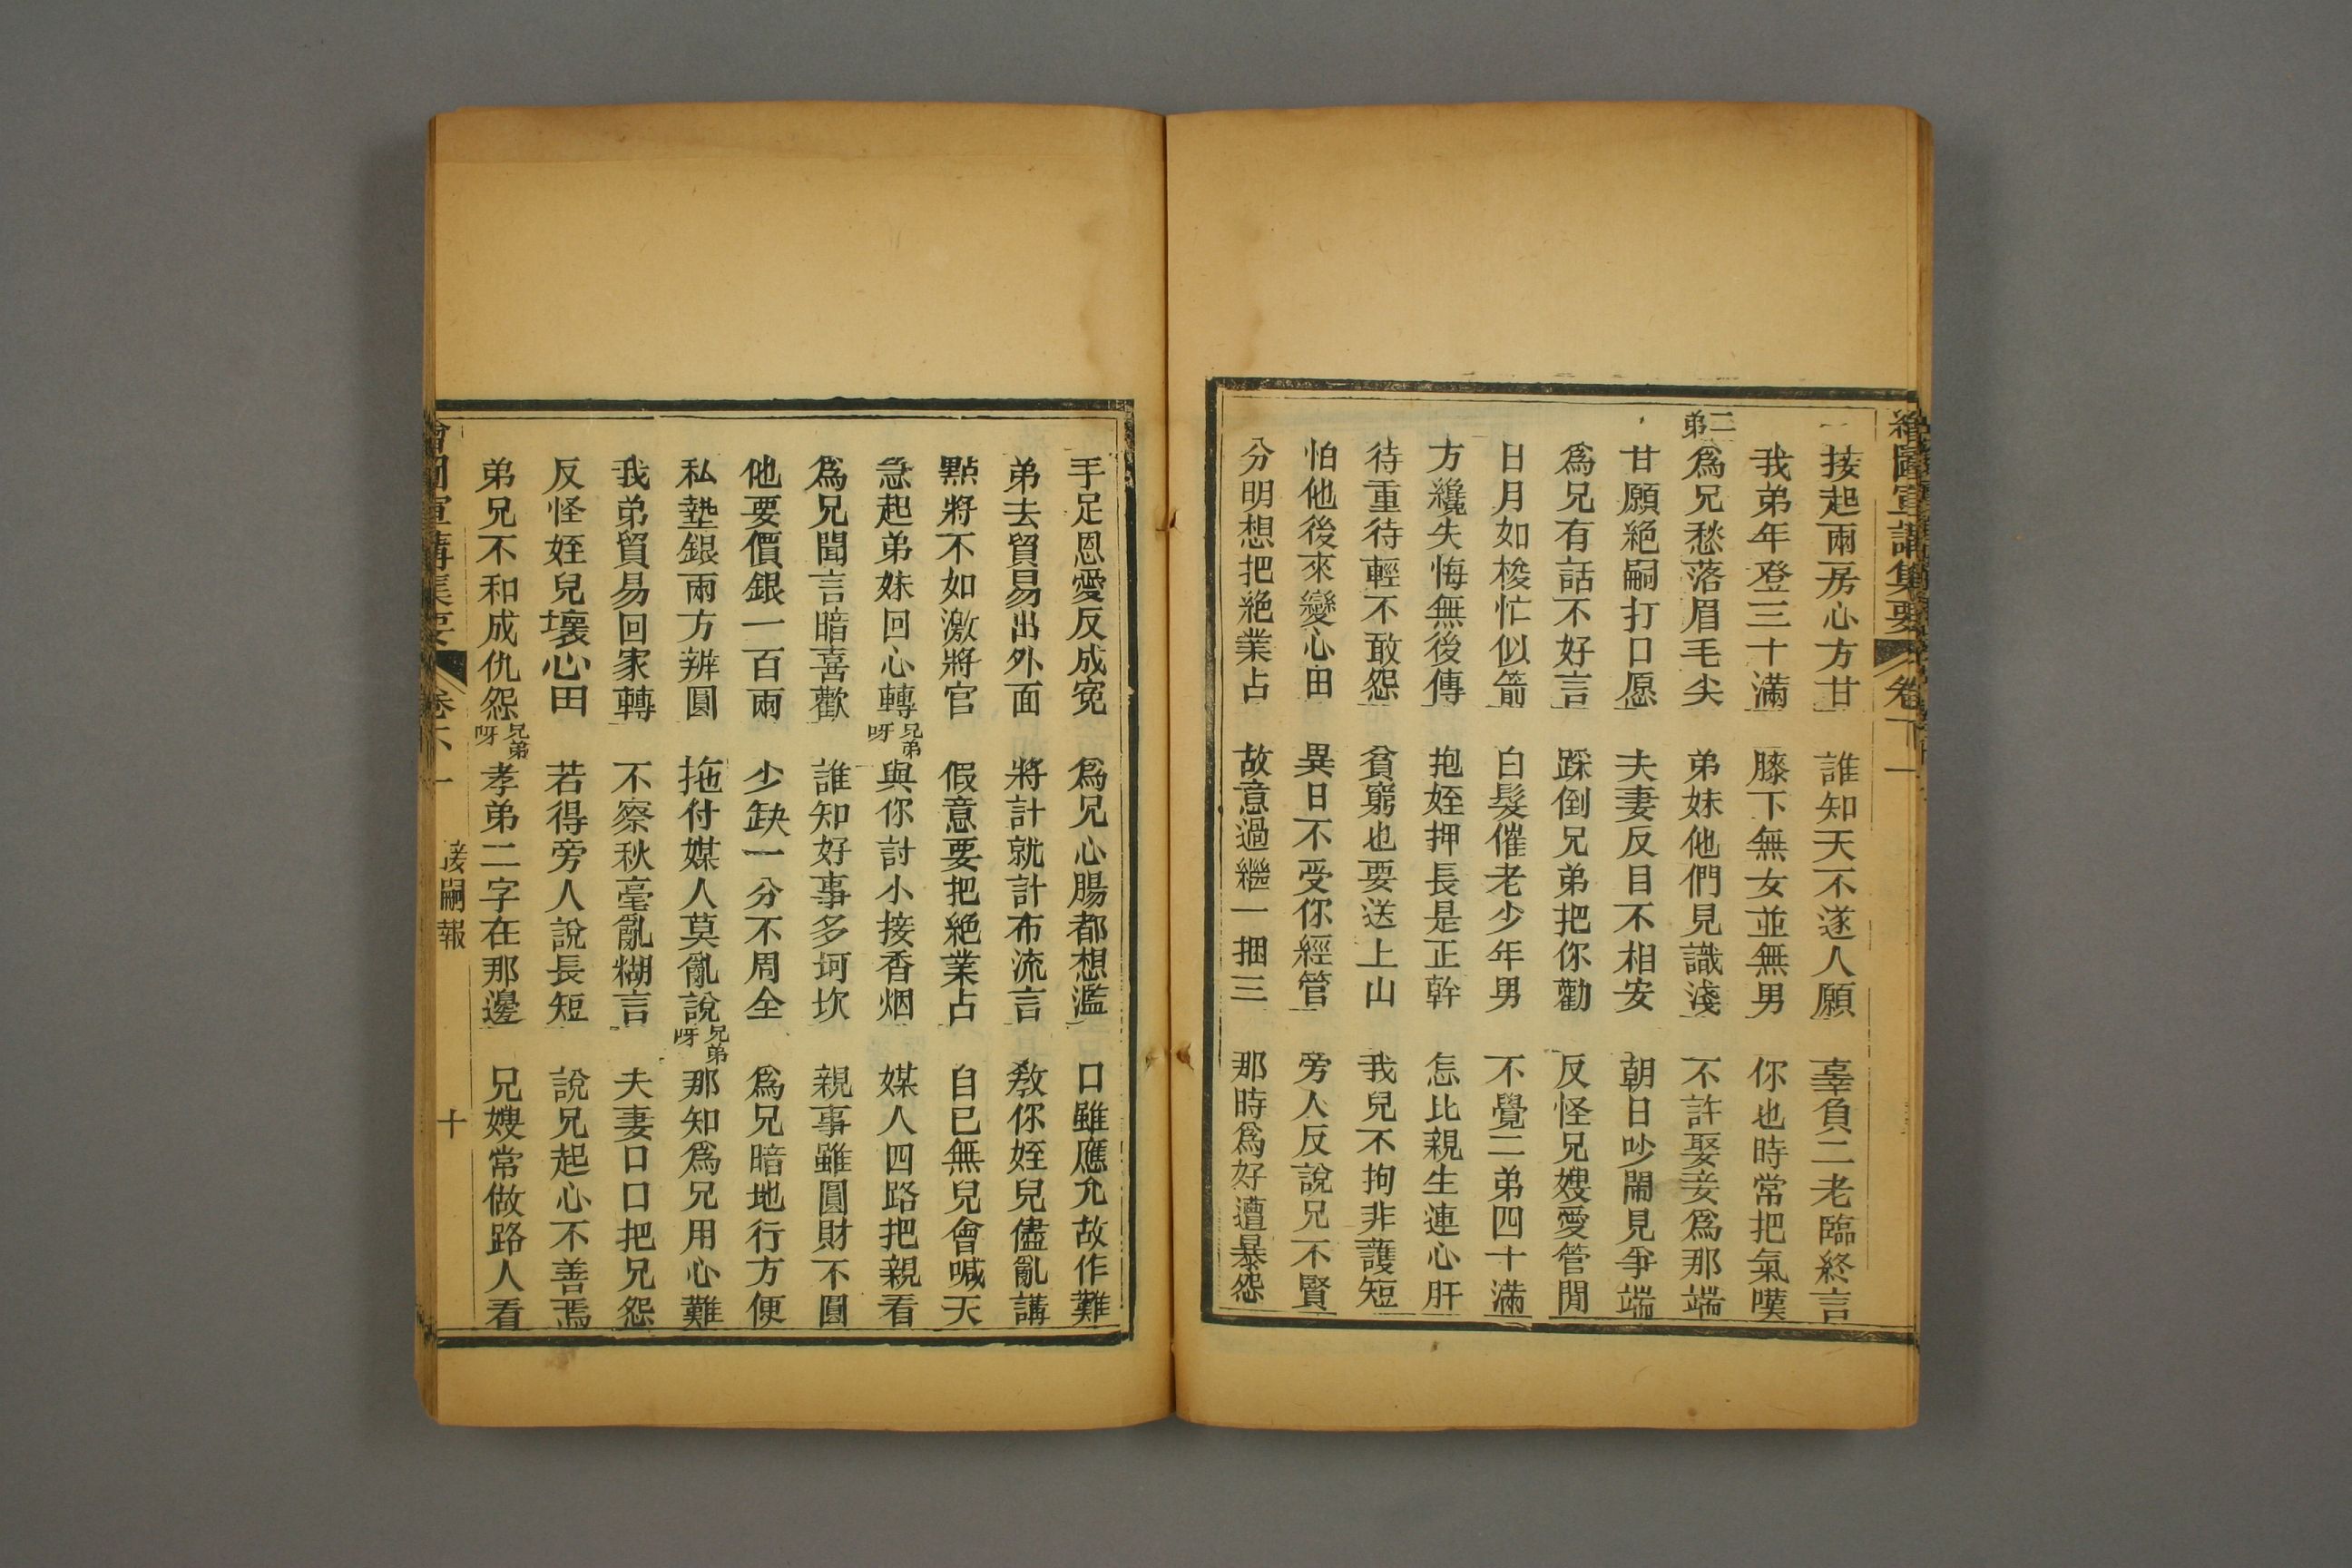 繪圖宣講集要 卷下一
接起兩房心方甘 誰知天不遂人願 辜負二老臨終言
我弟年登三十滿 膝下無女並無男 你也時常把氣嘆
二弟 爲兄愁落眉毛尖 弟妹他們見識淺 不許娶妾爲那端
甘願絕嗣打口愿 夫妻反目不相安 朝日吵鬧見爭端
爲兄有話不好言 踩倒兄弟把你勸 反怪兄嫂愛管閒
日月如梭忙似箭 白髮催老少年男 不覺二弟四十滿
方纔失悔無後傳 抱姪押長是正幹 怎比親生連心肝
待重待輕不敢怨 貧窮也要送上山 我兒不拘非護短
怕他後來變心田 異日不受你經管 旁人反說兄不賢
分明想把絕業占 故意過繼一捆三 那時爲好遭暴怨
手足恩愛反成寃 爲兄心腸都想濫 口雖應允故作難
弟去貿易出外面 將計就計布流言 教你姪兒儘亂講
點將不如激將官 假意要把絕業占 自已無兒會喊天
急起弟妹回心轉 兄弟呀 與你討小接香烟 媒人四路把親看
爲兄聞言暗喜歡 誰知好事多坷坎 親事雖圓財不圓
他要價銀一百兩 少缺一分不周全 爲兄暗地行方便
私墊銀兩方辦圓 拖付媒人莫亂說 兄弟呀 那知爲兄用心難
我弟貿易回家轉 不察秋毫亂糊言 夫妻口口把兄怨
反怪姪兒壞心田 若得旁人說長短 說兄起心不善焉
弟兄不和成仇怨 兄弟呀 孝弟二字在那邊 兄嫂常做路人看
宣講集要 卷下一 接嗣報 十